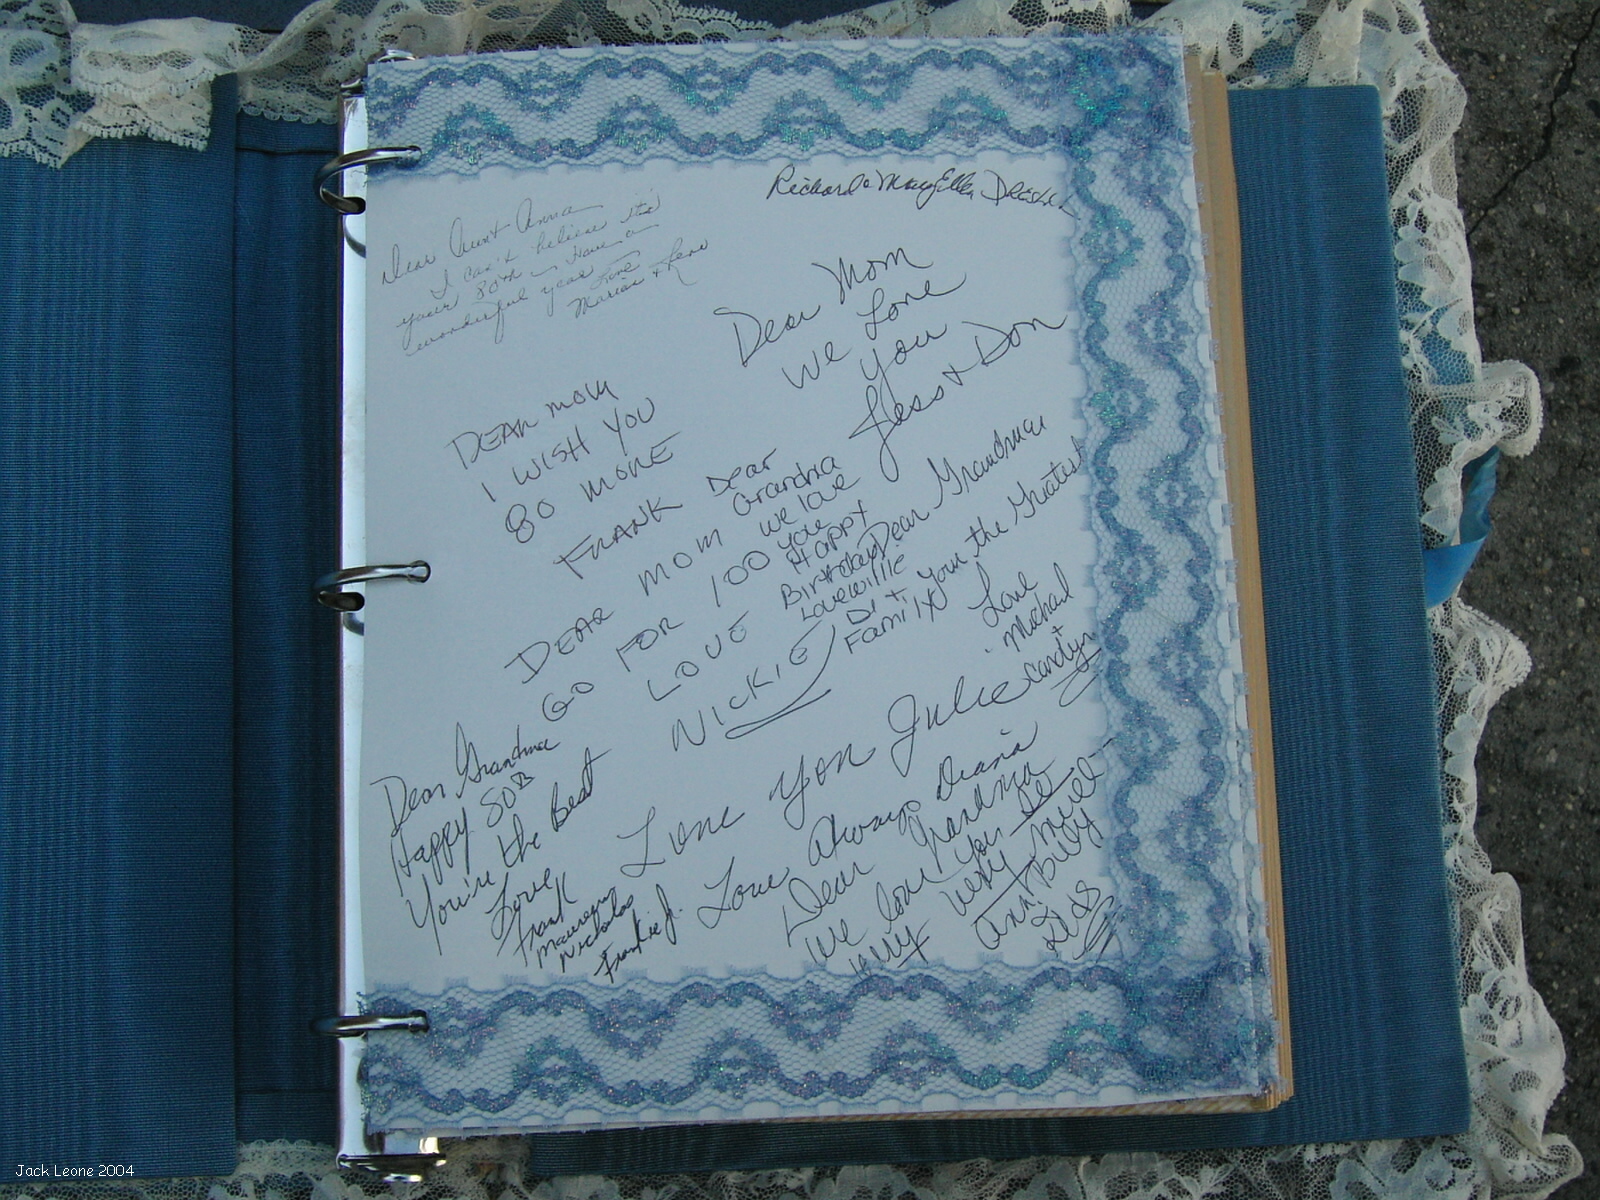 Richard & MaryEllen
Dear Aunt Anna
I can't believe it's
your 80th - Have a
wonderful year
Love
Marian &
Dear Mom
We Love
You
Jess + Don
DEAR MOM
I WISH YOU
80 MORE
FRANK
Dear
Grandma
we love
you
Happy
Birthday
Love Willie
Di +
Family
DEAR MOM
GO FOR 100
LOVE
NICKIE
Dear Grandma
Your the Greatest
Love
Michael
+
Carolyn
Dear Grandma
Happy 80th
You're the Best
Love
Frank
Maureen
Nicholas
Frankie J.
Love You Julie
Love Always Diana
Dear Grandma
We love You
very much
Billy
Jack Leone 2004